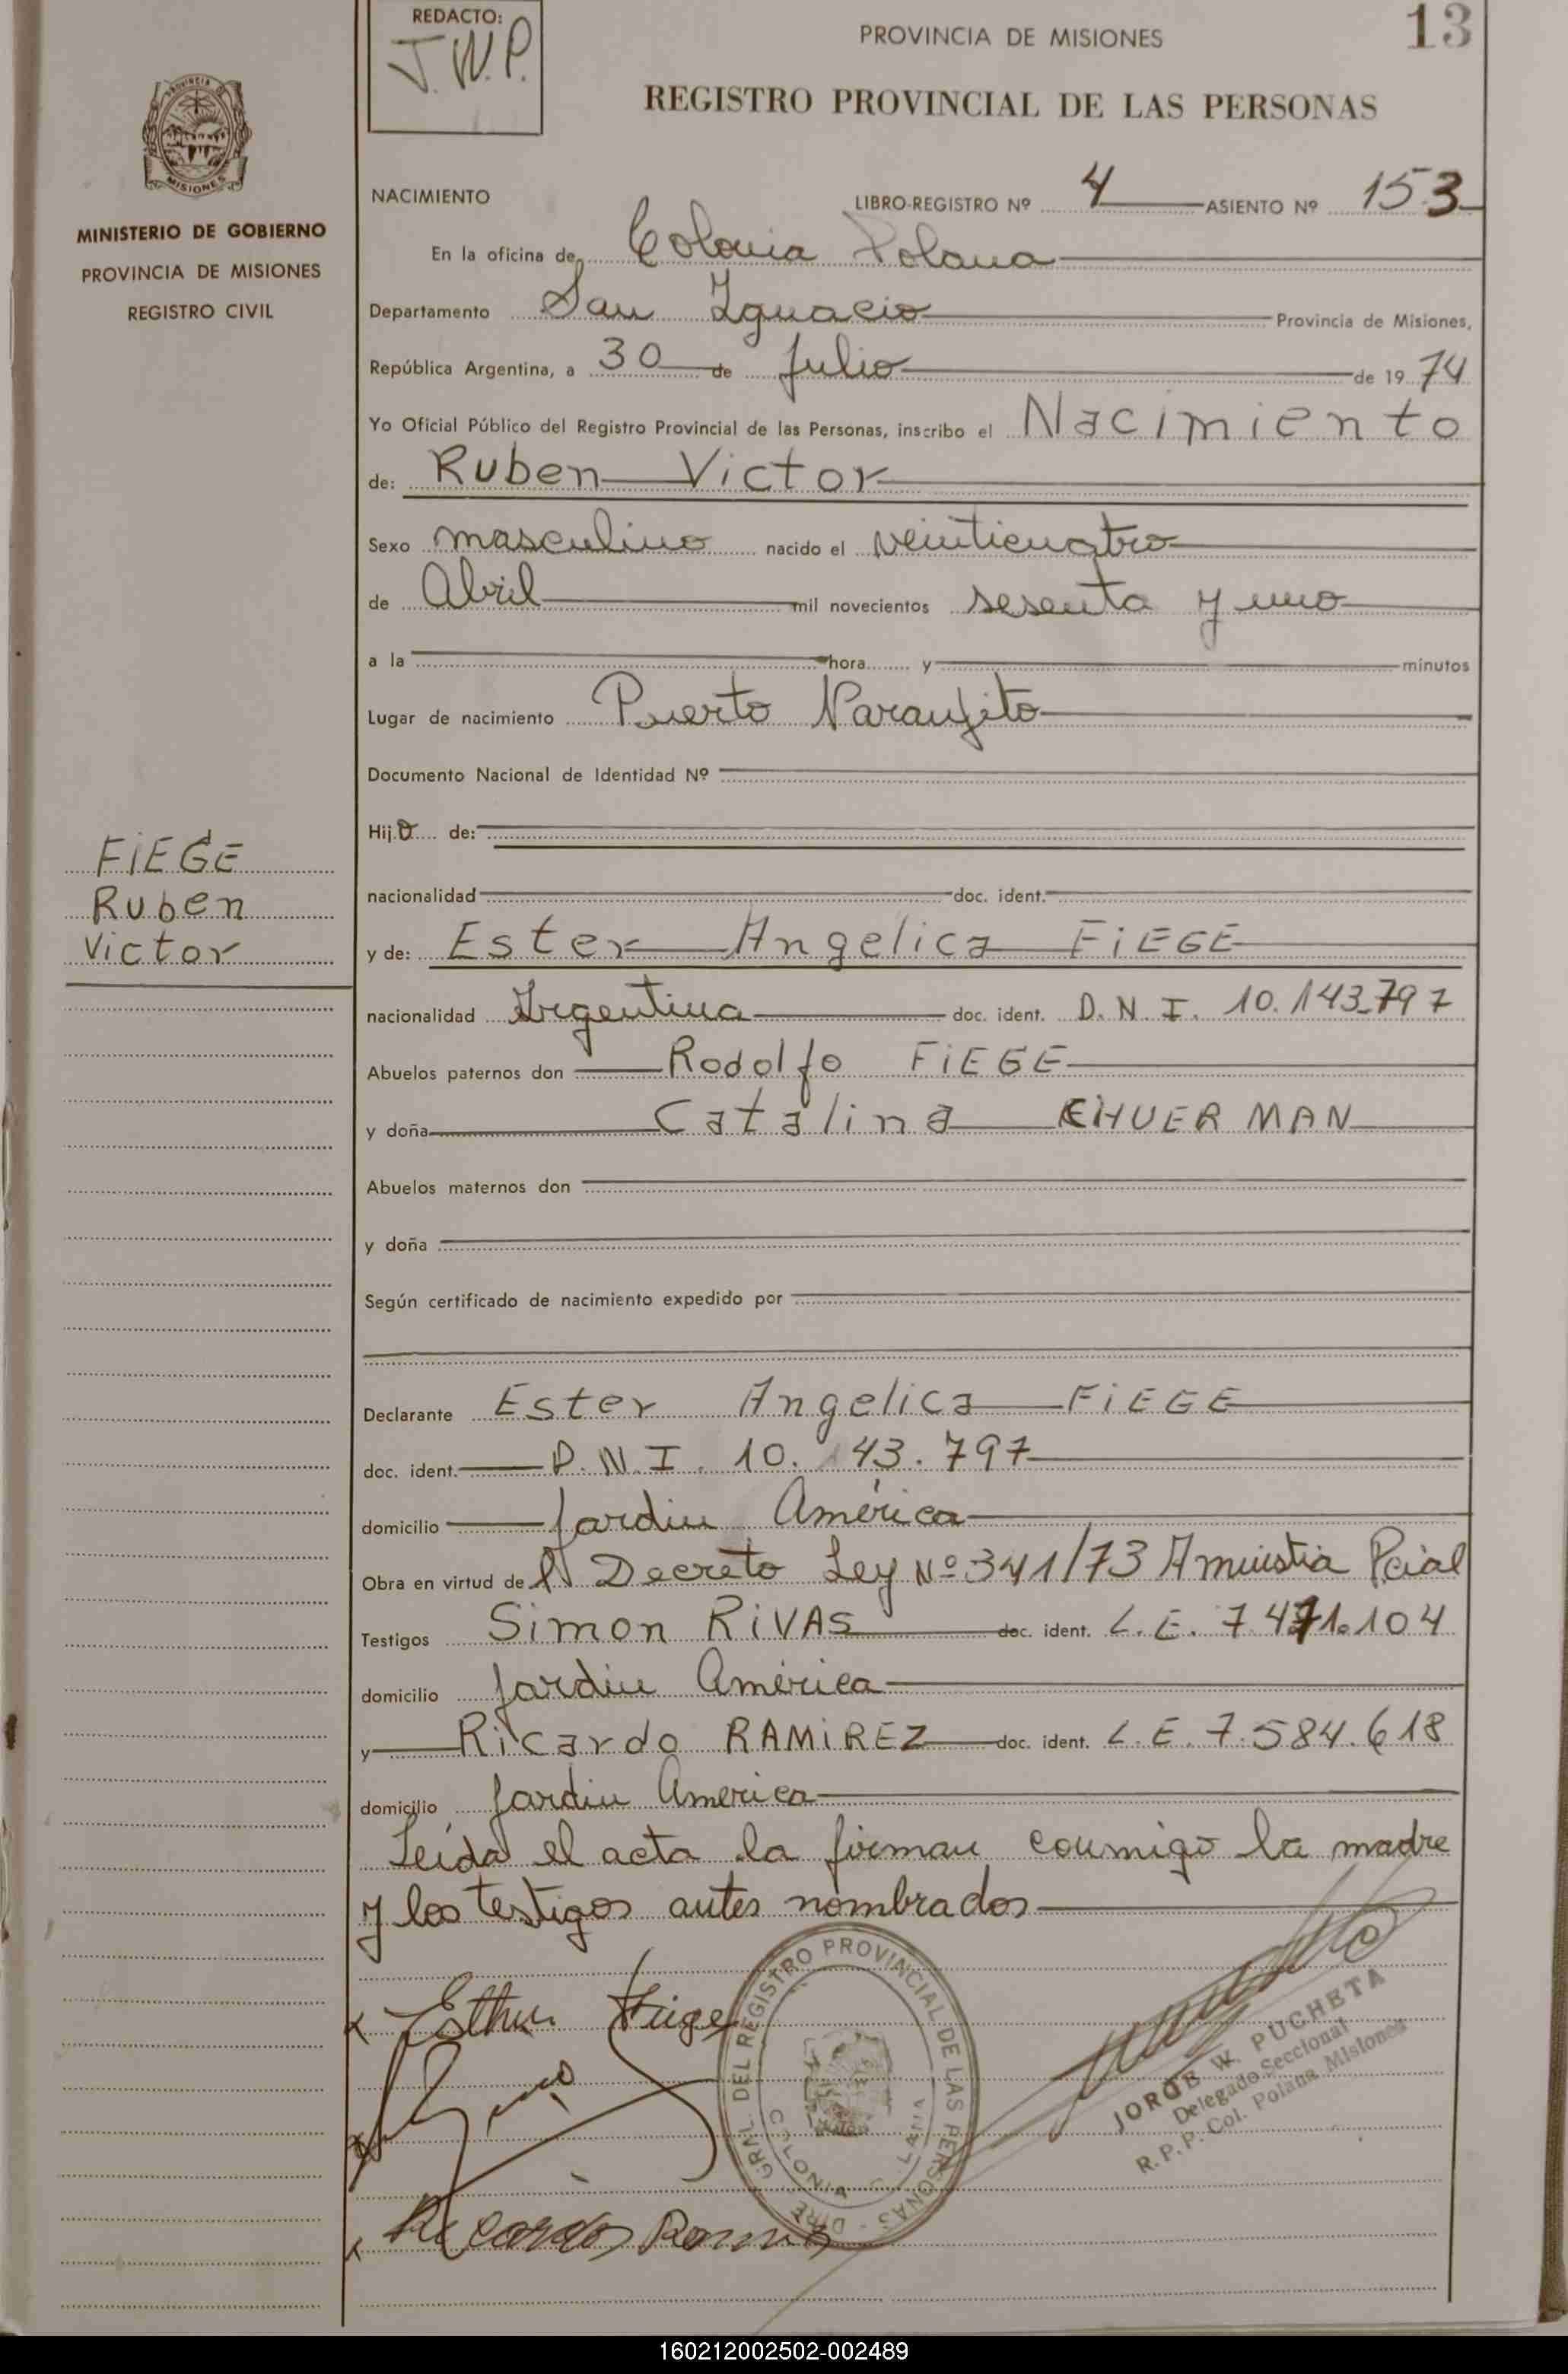 REDACTO:
J.W.P.
PROVINCIA DE MISIONES
13
REGISTRO PROVINCIAL DE LAS PERSONAS
MISIONES
MINISTERIO DE GOBIERNO
PROVINCIA DE MISIONES
REGISTRO CIVIL
NACIMIENTO LIBRO-REGISTRO Nº 4 ASIENTO Nº 153
En la oficina de Colonia Polana
Departamento San Ignacio Provincia de Misiones,
República Argentina, a 30 de Julio de 1974
Yo Oficial Público del Registro Provincial de las Personas, inscribo el Nacimiento
de: Ruben Victor
Sexo masculino nacido el veinticuatro
de Abril mil novecientos sesenta y uno
a la hora y minutos
Lugar de nacimiento Puerto Naranjito
Documento Nacional de Identidad Nº
Hijo de:
FiEGE
Ruben
Victor
nacionalidad doc. ident.
y de: Ester Angelica FiEGE
nacionalidad Argentina doc. ident. D.N.I. 10.143.797
Abuelos paternos don Rodolfo FiEGE
y doña Catalina CHUERMAN
Abuelos maternos don
y doña
Según certificado de nacimiento expedido por
Declarante Ester Angelica FiEGE
doc. ident. D.N.I. 10.143.797
domicilio Jardin América
Obra en virtud de l Decreto Ley Nº 341/73 Amnistia Pcial
Testigos Simon RiVAS doc. ident. L.E. 7.471.104
domicilio Jardin América
y Ricardo RAMiREZ doc. ident. L.E. 7.584.618
domicilio Jardin America
Leida el acta la firman conmigo la madre
y los testigos antes nombrados
Esther Fiege
DIRE GRAL. DEL REGISTRO PROVINCIAL DE LAS PERSONAS
COLONIA LANA
JORGE W. PUCHETA
Delegado Seccional
R.P.P. Col. Polana Misiones
Ricardo
160212002502-002489